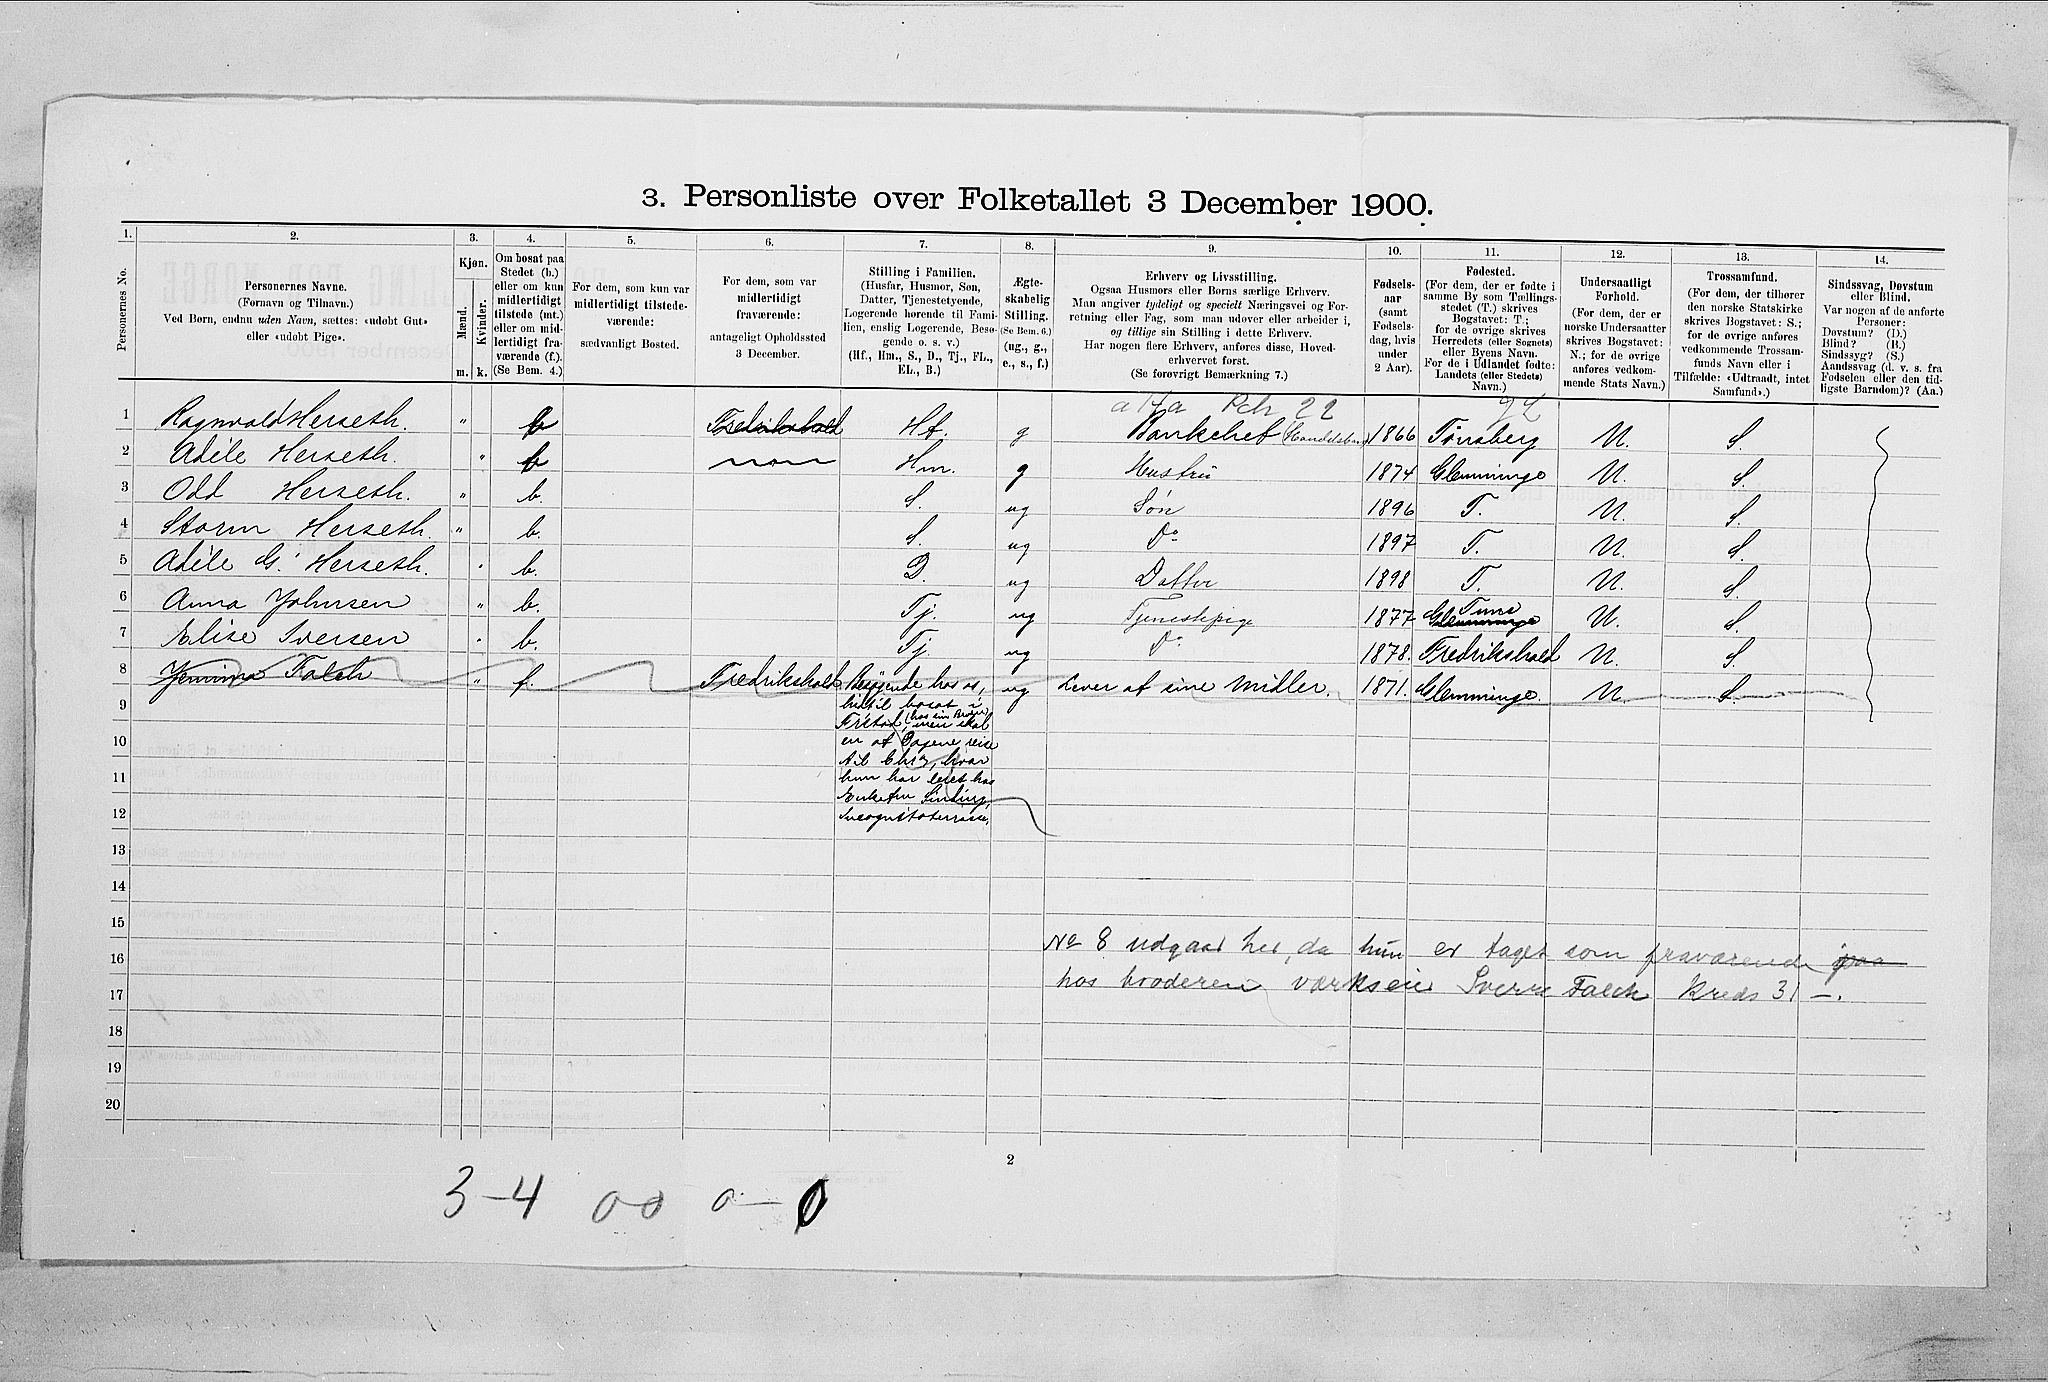 3. Personliste over Folketallet 3 December 1900.
1. 2. 3. 4. 5. 6. 7. 8. 9. 10. 11. 12. 13. 14.
Personernes No.
Personernes Navne.
(Fornavn og Tilnavn.)
Ved Børn, endnu uden Navn, sættes: «udøbt Gut»
eller «udøbt Pige».
Kjøn.
Mænd.
Kvinder.
m. k.
Om bosat paa
Stedet (b.)
eller om kun
midlertidigt
tilstede (mt.)
eller om mid-
lertidigt fra-
værende (f.).
(Se Bem. 4.)
For dem, som kun var
midlertidigt tilstede-
værende:
sædvanligt Bosted.
For dem, som var
midlertidigt
fraværende:
antageligt Opholdssted
3 December.
Stilling i Familien.
(Husfar, Husmor, Søn,
Datter, Tjenestetyende,
Logerende hørende til Fami-
lien, enslig Logerende, Besø-
gende o. s. v.)
(Hf., Hm., S., D., Tj., FL.,
EL., B.)
Ægte-
skabelig
Stilling.
(Se Bem. 6.)
(ug., g.,
e., s., f.)
Erhverv og Livsstilling.
Ogsaa Husmors eller Børns særlige Erhverv.
Man angiver tydeligt og specielt Næringsvei og For-
retning eller Fag, som man udover eller arbeider i,
og tillige sin Stilling i dette Erhverv.
Har nogen flere Erhverv, anføres disse, Hoved-
erhvervet først.
(Se forøvrigt Bemærkning 7.)
Fødsels-
aar
(samt
Fødsels-
dag, hvis
under
2 Aar).
Fødested.
(For dem, der er fødte i
samme By som Tællings-
stedet (T.) skrives
Bogstavet: T.;
for de øvrige skrives
Herredets (eller Sognets)
eller Byens Navn.
For de i Udlandet fødte:
Landets (eller Stedets)
Navn.)
Undersaatligt
Forhold.
(For dem, der er
norske Undersaatter
skrives Bogstavet:
N.; for de øvrige
anføres vedkom-
mende Stats Navn.)
Trossamfund.
(For dem, der tilhører
den norske Statskirke
skrives Bogstavet: S.;
for de øvrige anføres
vedkommende Trossam-
funds Navn eller i
Tilfælde: «Udtraadt, intet
Samfund».)
Sindssvag, Døvstum
eller Blind.
Var nogen af de anførte
Personer:
Døvstum? (D.)
Blind? (B.)
Sindssyg? (S.)
Aandssvag (d. v. s. fra
Fødselen eller den tid-
ligste Barndom)? (Aa.)
22
1 Ragnvald Herseth. " b Fredrikshald Hf. g Bankchef 1866 Tønsberg N. S.
2 Adéle Herseth. " b Hm. g Hustru 1874 Glemminge N. S.
3 Odd Herseth. " b. S. ug Søn 1896 T. N. S.
4 Storm Herseth. " b. S. ug Do 1897 T. N. S.
5 Adéle G. Herseth. " b. D. ug Datter 1898 T. N. S.
6 Anna Johnsen " b. Tj. ug Tjenestepige 1877 Tune Glemminge N. S.
7 Elise Iversen " b. Tj. ug Do 1878. Fredrikshald N. S.
8 Jemima Falch " f. Fredrikshald Besøgende hos os, ug Lever af sine Midler. 1871. Glemminge N. S.
9 hidtil bosat i
(hos sin Broder)
men skal
10 en af Dagene reise
til Chra, hvor
11 hun har leiet hos
Enkefru Sinding,
12 Incognitoterrasse.
13
14
15
16 No 8 udgaar her, da hun er taget som fraværende paa
17 hos broderen værkseier Sverre Falch Kreds 31 –.
18
19
20
2
3–4 00 0–0